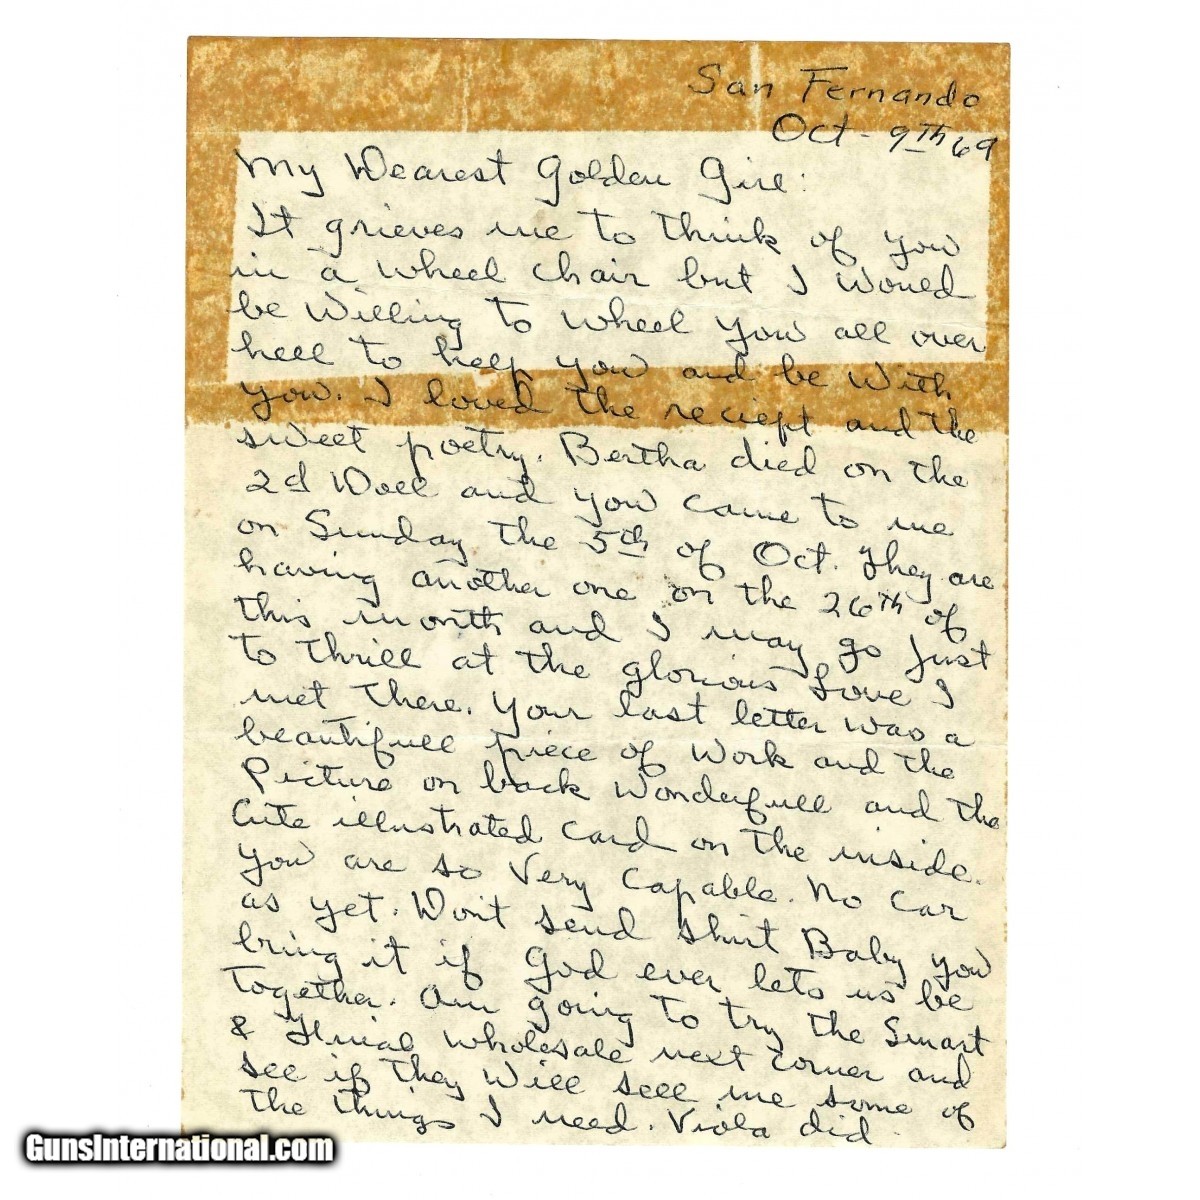 San Fernando
Oct - 9th 69
My Dearest Golden Girl:
It grieves me to think of you
in a wheel chair but I would
be willing to wheel you all over
hell to help you and be with
you. I loved the reciept and the
sweet poetry. Bertha died on the
2d Doll and you came to me
on Sunday the 5th of Oct. They are
having another one on the 26th of
this month and I may go just
to thrill at the glorious Love I
met there. Your last letter was a
beautifull piece of work and the
Picture on back wonderfull and the
Cute illustrated card on the inside.
you are so very capable. No car
as yet. Dont send shirt Baby you
bring it if God ever lets us be
together. Am going to try the Smart
& Final wholesale next corner and
see if they will sell me some of
the things I need. Viola did
GunsInternational.com